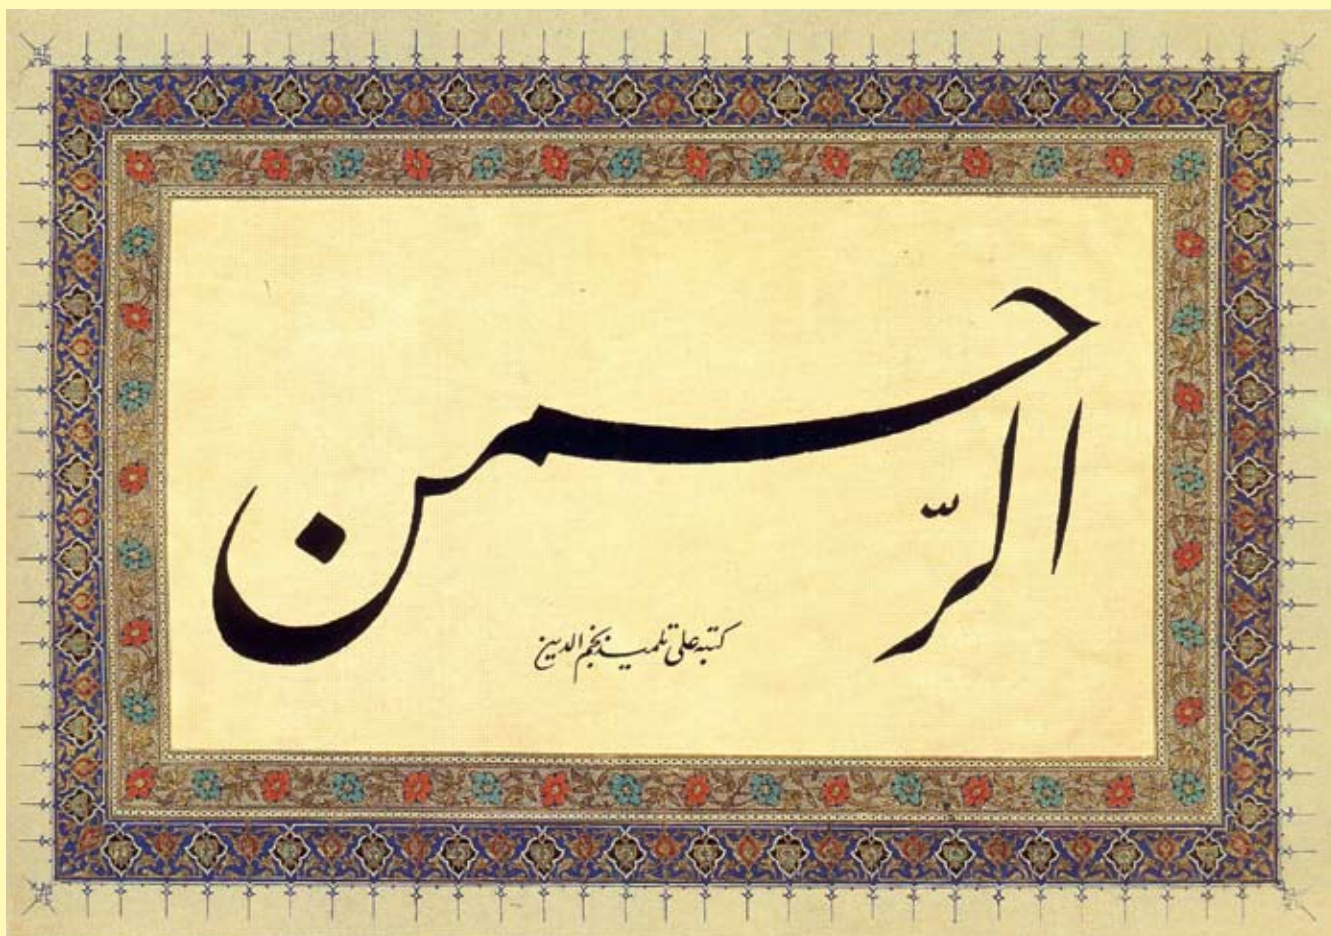 الرّحمن
كتبه علي تلميذ نجم الدين